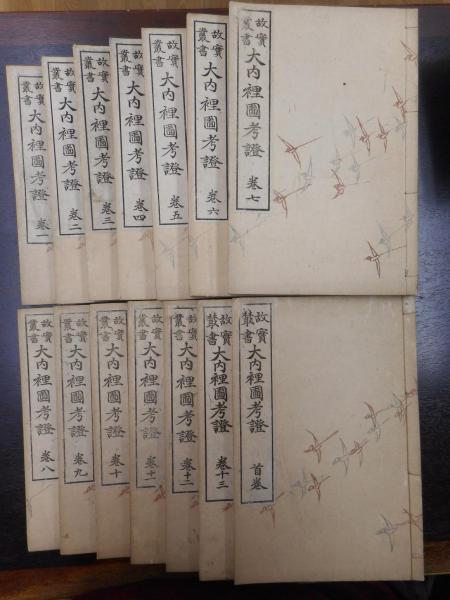 故實叢書 大内裡圖考證 卷一
故實叢書 大内裡圖考證 卷二
故實叢書 大内裡圖考證 卷三
故實叢書 大内裡圖考證 卷四
故實叢書 大内裡圖考證 卷五
故實叢書 大内裡圖考證 卷六
故實叢書 大内裡圖考證 卷七
故實叢書 大内裡圖考證 卷八
故實叢書 大内裡圖考證 卷九
故實叢書 大内裡圖考證 卷十
故實叢書 大内裡圖考證 卷十一
故實叢書 大内裡圖考證 卷十二
故實叢書 大内裡圖考證 卷十三
故實叢書 大内裡圖考證 首卷